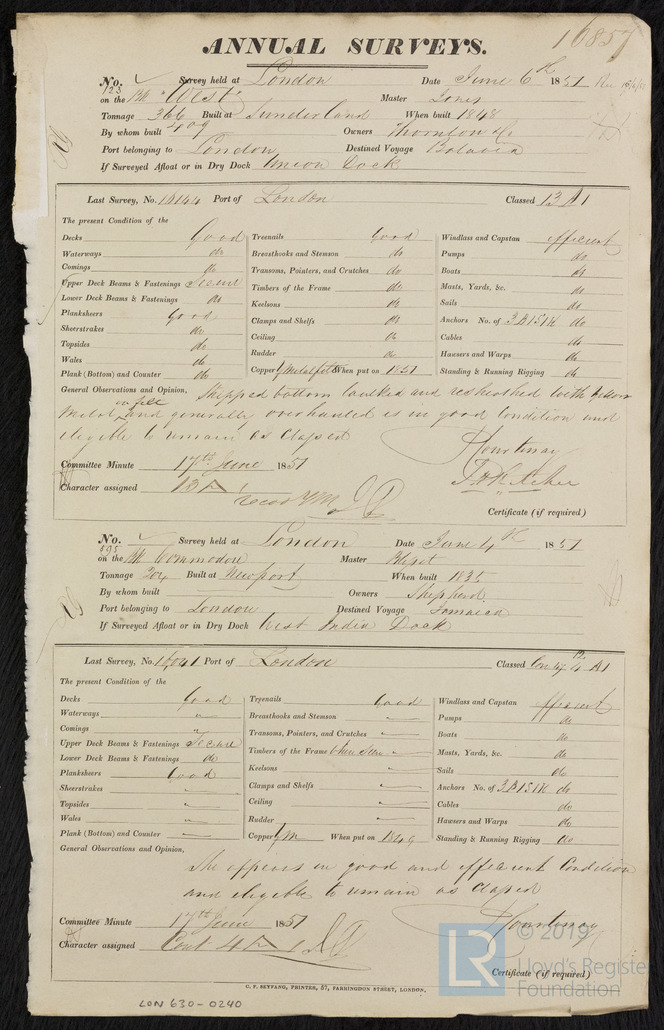 16857
ANNUAL SURVEYS.
No. 123 Survey held at London Date June 6th 1851
on the Bk "West" Master Jones
Tonnage 366 409 Built at Sunderland When built 1848
By whom built Owners Thornton &c
Port belonging to London Destined Voyage Batavia
If Surveyed Afloat or in Dry Dock Union Dock
Last Survey, No. 18144 Port of London Classed 13 A1
The present Condition of the
Decks Good Treenails Good Windlass and Capstan efficient
Waterways do Breasthooks and Stemson do Pumps do
Comings do Transoms, Pointers, and Crutches do Boats do
Upper Deck Beams & Fastenings Secure Timbers of the Frame do Masts, Yards, &c. do
Lower Deck Beams & Fastenings do Keelsons do Sails do
Planksheers Good Clamps and Shelfs do Anchors No. of 3B 1S 1K do
Sheerstrakes do Ceiling do Cables do
Topsides do Rudder do Hawsers and Warps do
Wales do Copper When put on 1851 Standing & Running Rigging do
Plank (Bottom) and Counter do
General Observations and Opinion, Stripped bottom caulked and resheathed with yellow
Metal on felt and generally overhauled is in good Condition and
eligible to remain as Classed
Courtenay
Committee Minute 17th June 1851
Character assigned 13 A 1
Certificate (if required)
No. 595 Survey held at London Date June 4th 1851
on the Bk Commodore Master
Tonnage 204 Built at Newport When built 1835
By whom built Owners Shepherd
Port belonging to London Destined Voyage Jamaica
If Surveyed Afloat or in Dry Dock West India Dock
Last Survey, No. 16041 Port of London Classed
The present Condition of the
Decks Good Treenails Good Windlass and Capstan efficient
Waterways " Breasthooks and Stemson Pumps do
Comings " Transoms, Pointers, and Crutches Boats do
Upper Deck Beams & Fastenings Secure Timbers of the Frame when seen Masts, Yards, &c. do
Lower Deck Beams & Fastenings do Keelsons Sails do
Planksheers Good Clamps and Shelfs Anchors No. of 3B 1S 1K do
Sheerstrakes Ceiling Cables do
Topsides Rudder Hawsers and Warps do
Wales Copper YM When put on 1849 Standing & Running Rigging do
Plank (Bottom) and Counter
General Observations and Opinion,
She appears in good and efficient Condition
and eligible to remain as Classed
Courtenay
Committee Minute 17th June 1851
Character assigned Cont 4 A 1
Certificate (if required)
C. F. SEYFANG, PRINTER, 57, FARRINGDON STREET, LONDON.
LON 630-0240
LR © 2019
Lloyd's Register
Foundation